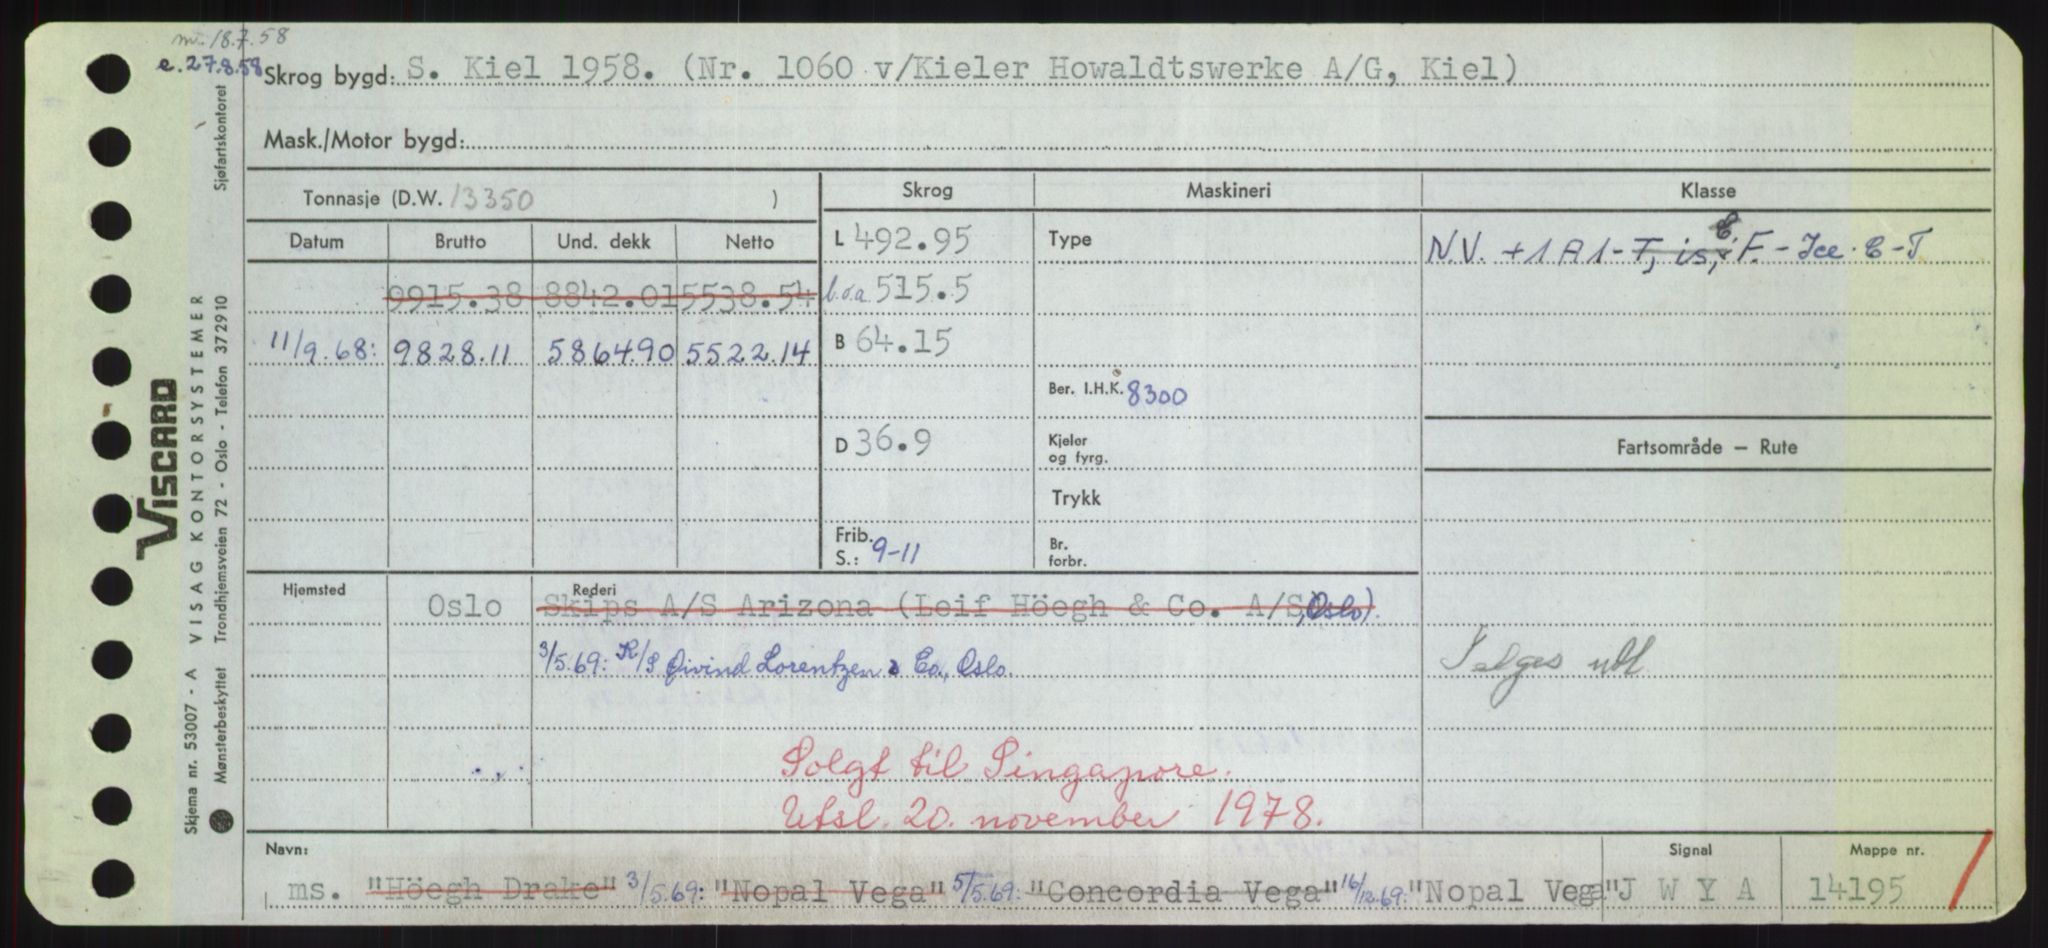 m. 18.7.58
e. 27.8.58
Skrog bygd: S. Kiel 1958. (Nr. 1060 v/Kieler Howaldtswerke A/G, Kiel)
Mask./Motor bygd:
Tonnasje (D.W. 13350 )
Skrog
Maskineri
Klasse
Datum Brutto Und. dekk Netto
9915.38 8842.01 5538.54
11/9.68: 9828.11 5864.90 5522.14
L 492.95
l.o.a 515.5
B 64.15
D 36.9
Frib.
S.: 9-11
Type
Ber. I.H.K. 8300
Kjeler
og fyrg.
Trykk
Br.
forbr.
N.V. +1A1-T, is, C F.-Ice.C-T
Fartsområde – Rute
Selges utl
Hjemsted
Oslo
Rederi
Skips A/S Arizona (Leif Höegh & Co. A/S, Oslo).
3/5.69: K/S Øivind Lorentzen & Co., Oslo.
Solgt til Singapore.
Utsl. 20. november 1978.
Navn:
ms. "Höegh Drake" 3/5.69: "Nopal Vega" 5/5.69: "Concordia Vega" 16/12.69: "Nopal Vega"
Signal
J W Y A
Mappe nr.
14195
VISCARD
VISAG KONTORSYSTEMER
Skjema nr. 53007 - A
Sjøfartskontoret
Trondhjemsveien 72 - Oslo - Telefon 372910
Mønsterbeskyttet